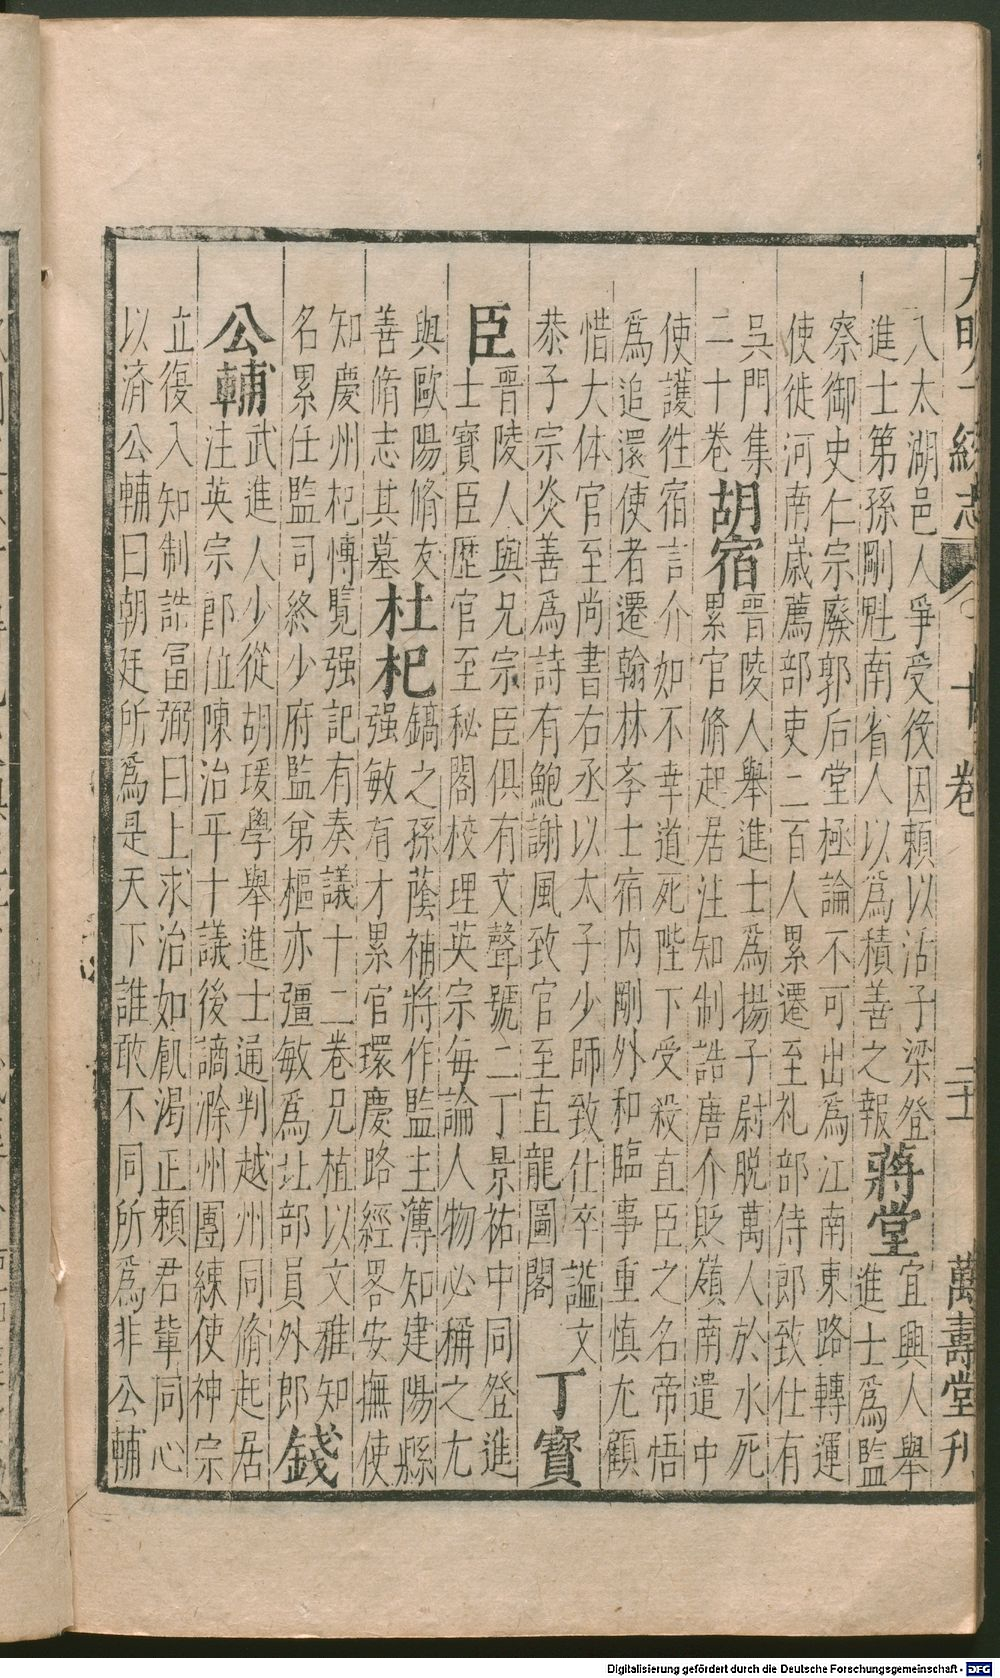 大明一統志 卷 二十 萬壽堂刊
八太湖邑人爭受役因賴以活子梁登
進士第孫剛魁南省人以爲積善之報蔣堂宜興人舉
進士爲監
察御史仁宗廢郭后堂極論不可出爲江南東路轉運
使徙河南歳薦部吏二百人累遷至礼部侍郎致仕有
吳門集
二十卷胡宿晋陵人舉進士爲揚子尉脱萬人於水死
累官脩起居注知制誥唐介貶嶺南遣中
使護徃宿言介如不幸道死陛下受殺直臣之名帝悟
爲追還使者遷翰林李士宿内剛外和臨事重慎尤顧
惜大体官至尚書右丞以太子少師致仕卒謚文
恭子宗炎善爲詩有鮑謝風致官至直龍圖閣丁寳
臣晋陵人與兄宗臣俱有文聲號二丁景祐中同登進
士寳臣歴官至秘閣校理英宗每論人物必稱之尤
與歐陽脩友
善脩志其墓杜杞鎬之孫蔭補將作監主簿知建陽縣
强敏有才累官環慶路經畧安撫使
知慶州杞愽覧强記有奏議十二巻兄植以文雅知
名累任監司終少府監弟樞亦彊敏爲北部員外郎錢
公輔武進人少從胡瑗學舉進士通判越州同脩起居
注英宗即位陳治平十議後謫滁州團練使神宗
立復入知制誥冨弼曰上求治如飢渴正頼君輩同心
以済公輔曰朝廷所爲是天下誰敢不同所爲非公輔
Digitalisierung gefördert durch die Deutsche Forschungsgemeinschaft - DFG